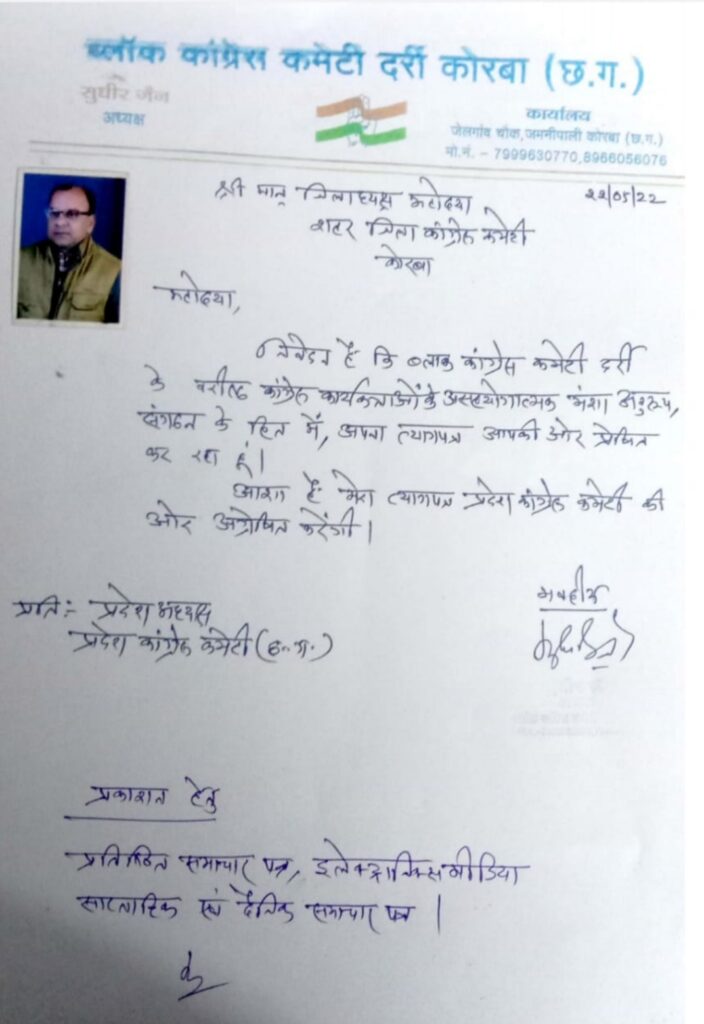 ब्लॉक कांग्रेस कमेटी दर्री कोरबा (छ.ग.)
सुधीर जैन
अध्यक्ष
कार्यालय
जेलगांव चौक, जमनीपाली कोरबा (छ.ग.)
मो.नं. – 7999630770, 8966056076
श्री मान् जिलाध्यक्ष महोदया
22/05/22
शहर जिला कांग्रेस कमेटी
कोरबा
महोदया,
निवेदन है कि ब्लाक कांग्रेस कमेटी दर्री
के वरीष्ठ कांग्रेस कार्यकर्त्ताओं के असहयोगात्मक मंशा अनुरूप,
संगठन के हित में, अपना त्यागपत्र आपकी ओर प्रेषित
कर रहा हूं।
आशा है मेरा त्यागपत्र प्रदेश कांग्रेस कमेटी की
ओर अग्रेषित करेंगी।
भवदीय
प्रति:- प्रदेश अध्यक्ष
प्रदेश कांग्रेस कमेटी (छ.ग.)
प्रकाशन हेतु
प्रतिष्ठित समाचार पत्र, इलेक्ट्रानिक्स मीडिया
साप्ताहिक एवं दैनिक समाचार पत्र।